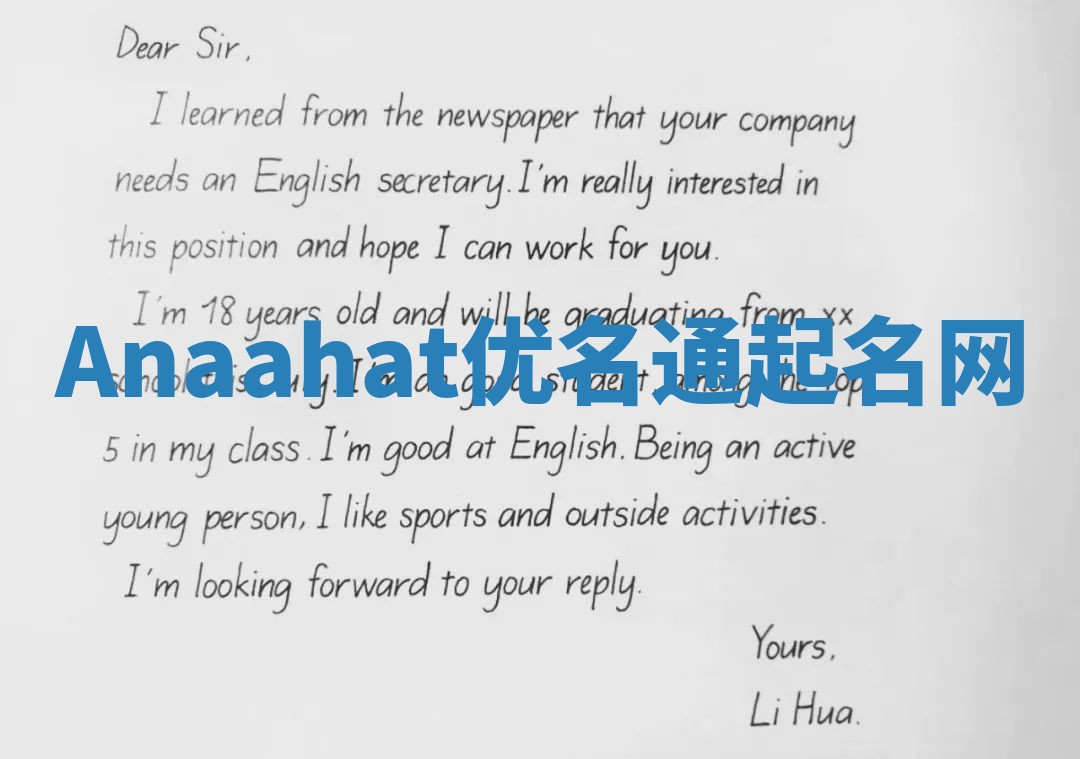 Dear Sir,
I learned from the newspaper that your company
needs an English secretary. I'm really interested in
this position and hope I can work for you.
I'm 18 years old and will be graduating from xx
Anaahat优名通起名网
I'm a good student, among the top
5 in my class. I'm good at English. Being an active
young person, I like sports and outside activities.
I'm looking forward to your reply.
Yours,
Li Hua.